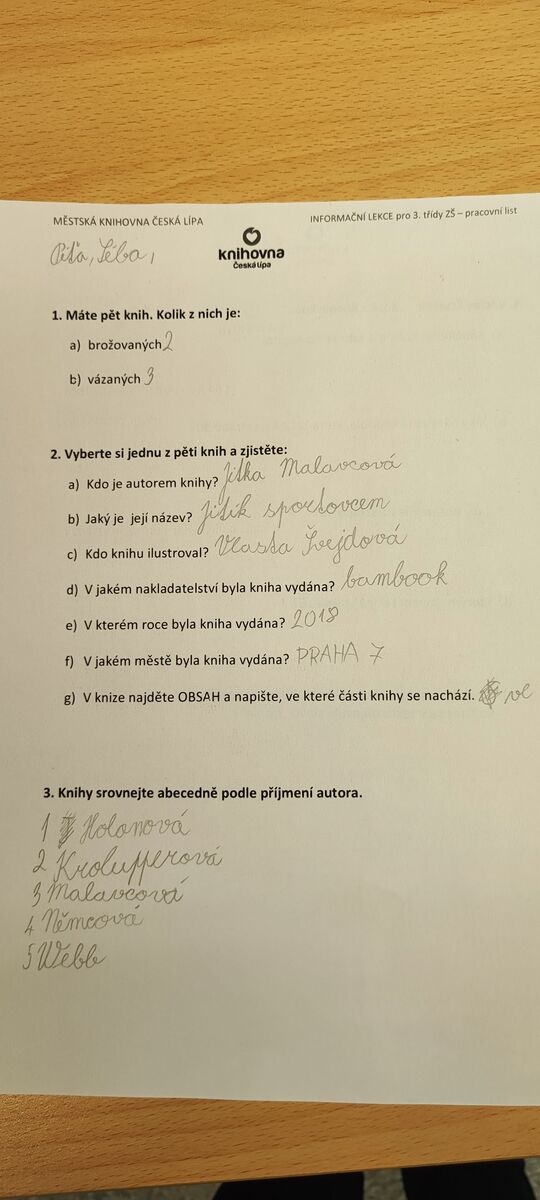 MĚSTSKÁ KNIHOVNA ČESKÁ LÍPA
INFORMAČNÍ LEKCE pro 3. třídy ZŠ – pracovní list
Píťa, Séba,
knihovna
Česká Lípa
1. Máte pět knih. Kolik z nich je:
a) brožovaných 2
b) vázaných 3
2. Vyberte si jednu z pěti knih a zjistěte:
a) Kdo je autorem knihy? Jitka Malavcová
b) Jaký je její název? Jitik sportovcem
c) Kdo knihu ilustroval? Vlasta Švejdová
d) V jakém nakladatelství byla kniha vydána? bambook
e) V kterém roce byla kniha vydána? 2018
f) V jakém městě byla kniha vydána? PRAHA 7
g) V knize najděte OBSAH a napište, ve které části knihy se nachází. ve
3. Knihy srovnejte abecedně podle příjmení autora.
1 Holanová
2 Krolupperová
3 Malavcová
4 Němcová
5 Webb